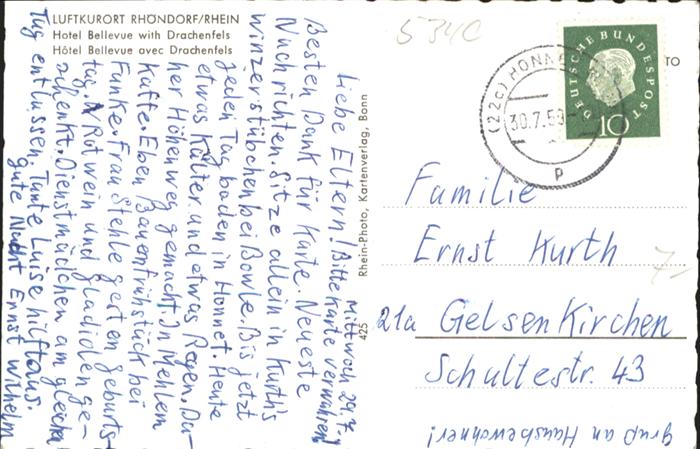 LUFTKURORT RHÖNDORF/RHEIN
Hotel Bellevue with Drachenfels
Hôtel Bellevue avec Drachenfels
Mittwoch 29.7.
Liebe Eltern! Bitte Karte verwahren!
Besten Dank für Karte. Neueste
Nachrichten. Sitze allein in Kurth's
Winzerstübchen bei Bowle. Bis jetzt
jeden Tag baden in Honnef. Heute
etwas Kälter und etwas Regen. Da-
her Höhenweg gemacht. In Mehlem
Kaffe. Eben Bauernfrühstück bei
Funke. Frau Stehle gestern Geburts-
tag. Rotwein und Gladiolen ge-
schenkt. Dienstmädchen am gleichen
Tag entlassen. Tante Luise hilft aus.
Gute Nacht Ernst Wilhelm
425
Rhein-Photo, Kartenverlag, Bonn
534C
DEUTSCHE BUNDESPOST
10
(22c) HONNEF
30.7.59
p
TO
Familie
Ernst Kurth
7-
21a GelsenKirchen
Schultestr. 43
Gruß an Hausbewohner!